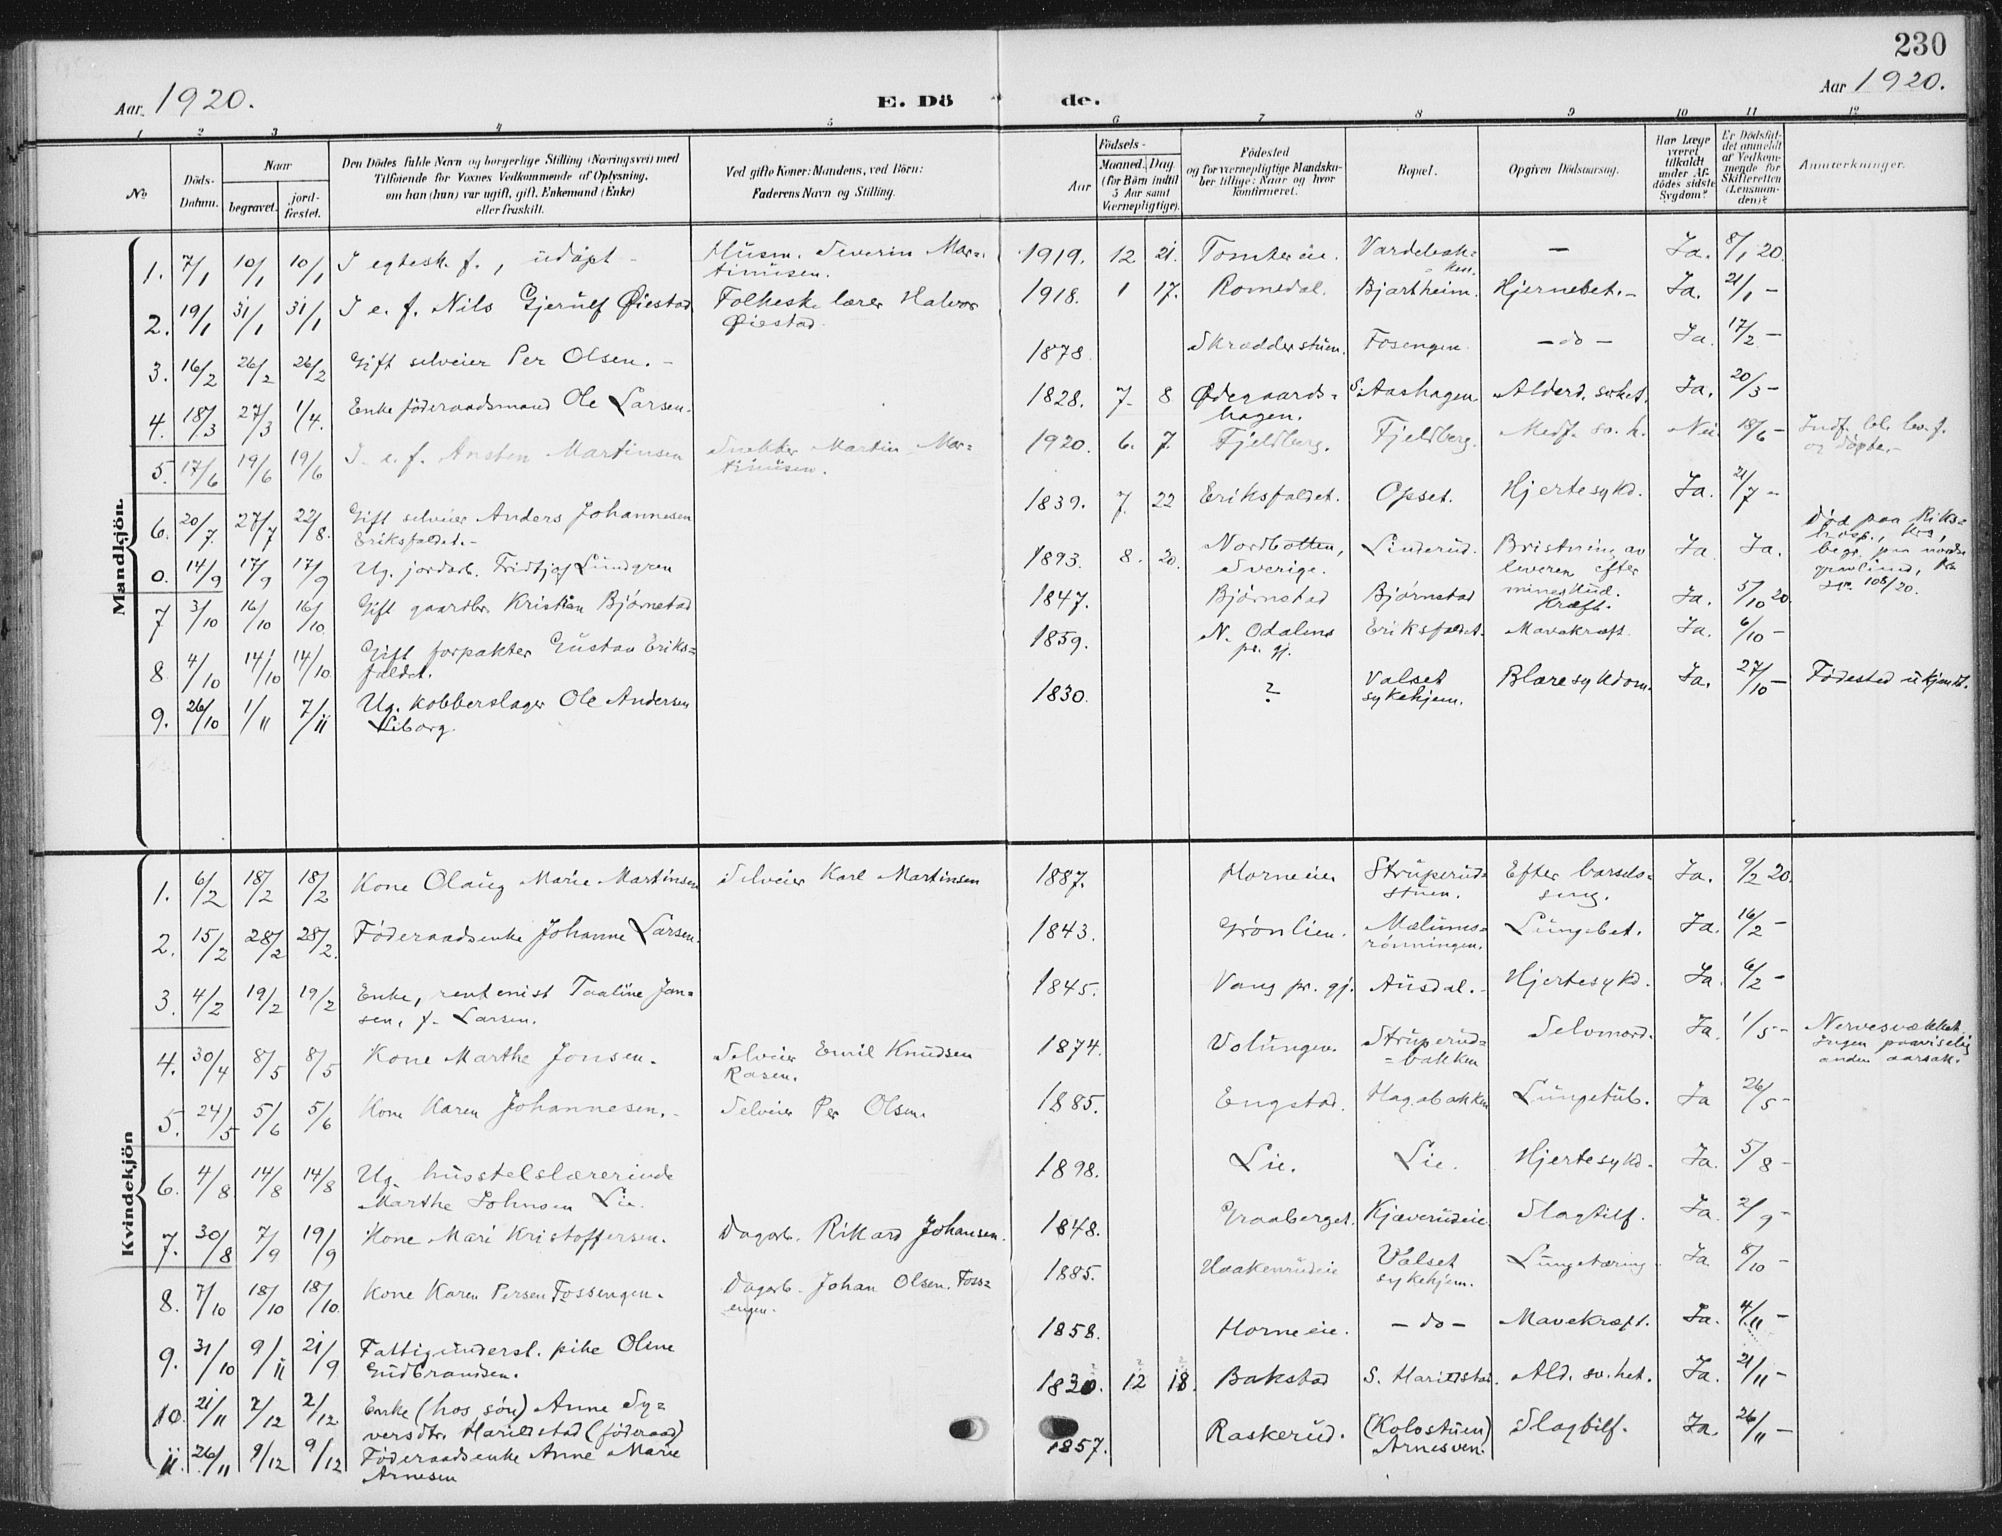 230
Aar 1920.
E. Dö de.
Aar 1920.
1 2 3 4 5 6 7 8 9 10 11 12
No
Döds-Datum.
Naar
begravet.
jord-fæstet.
Den Dödes fulde Navn og borgerlige Stilling (Næringsvei) med
Tilföiende for Voxnes Vedkommende af Oplysning,
om han (hun) var ugift, gift, Enkemand (Enke)
eller fraskilt.
Ved gifte Koner: Mandens, ved Börn:
Faderens Navn og Stilling.
Födsels-
Aar
Maaned. Dag
(for Börn indtil
5 Aar samt
Værnepligtige).
Födested
og for værnepligtige Mandska-
ber tillige: Naar og hvor
konfirmeret.
Bopæl.
Opgiven Dödsaarsag.
Har Læge
været
tilkaldt
under Af-
dödes sidste
Sygdom?
Er Dödsfal-
det anmeldt
af Vedkom-
mende for
Skifteretten
(Lensman-
den)?
Anmærkninger.
Mandkjön.
1. 7/1 10/1 10/1 I egtesk. f., udøpt - Husm. Severin Mar-
tinusen. 1919. 12 21. Tomter eie. Ja. 8/1 20.
2. 19/1 31/1 31/1 I e. f. Nils Gjerulf Øiestad Folkesk. lærer Halvor
Øiestad 1918. 1 17. Romedal. Bjartheim. Hjernebet. - Ja. 21/1 -
3. 16/2 26/2 26/2 Gift selveier Per Olsen. - 1878. Skrædderstuen. Fosengen. - do - Ja. 17/2 -
4. 18/3 27/3 1/4. Enke føderaadsmand Ole Larsen. 1828. 7. 8 Ødegaards-
hagen. S. Aashagen Alderd. svket. Ja. 20/3 -
5. 17/6 19/6 19/6 I. e. f. Ansten Martinsen Snekker Martin Mar-
tinusen. 1920. 6. 7. Fjeldberg. Fjeldberg. Medf. sv. h. Nei 18/6 - Indf. bl. lev. f.
og døpte.
6. 20/7 27/7 22/8. Gift selveier Anders Johannesen
Eriksfaldet. - 1839. 7. 22 Eriksfaldet. Opset. Hjertesykd. Ja. 21/7 -
0. 14/9 17/9 17/9 Ug. jordarb. Fridtjof Lundgren 1893. 8. 20. Nordbotten,
Sverige. Linderud. Bristning av
leveren efter
mineskud. Ja. Ja. Død paa Riks-
hosp., Kra,
begr. paa nordre
gravlund,
108/20.
7 3/10 16/10 16/10 Gift gaardbr. Kristian Bjørnstad 1847. Bjørnstad Bjørnstad Kræft. Ja. 5/10 20.
8 4/10 14/10 14/10 Gift forpakter Gustav Eriks-
faldet. 1859. N. Odalens
pr. gj. Eriksfaldet. Mavekræft. Ja. 6/10 -
9. 26/10 1/11 7/11 Ug. kobberslager Ole Andersen
Liborg. 1830. ? Valset
sykehjem. Blæresykdom. Ja. 27/10 - Fødested ukjendt.
Kvindekjön
1. 6/2 18/2 18/2 Kone Olaug Marie Martinsen Selveier Karl Martinsen 1887. Horneeie Struperud-
stuen. Efter barsels-
seng. Ja. 9/2 20.
2. 15/2 28/2 28/2. Føderaadsenke Johanne Larsen. 1843. Grønlien. Mælums-
rønningen. Lungebet. Ja. 16/2 -
3. 4/2 19/2 19/2 Enke, rentenist Taaline Jan-
sen, f. Larsen. 1845. Vang pr. gj. Ausdal. - Hjertesykd. Ja. 6/2 -
4. 30/4 8/5 8/5 Kone Marthe Jonsen. Selveier Emil Knudsen
Rasen. 1874. Volungen. Struperud-
bakken Selvmord. Ja. 1/5 - Nervesvækket.
Ingen paaviselig
anden aarsak.
5. 24/5 5/6 5/6 Kone Karen Johannesen. - Selveier Per Olsen. 1885. Engstad. Hagabakken Lungetub. Ja 26/5 -
6. 4/8 14/8 14/8 Ug. husstelslærerinde
Marthe Johnsen Lie. 1898. Lie. Lie. Hjertesykd. Ja. 5/8 -
7. 30/8 7/9 19/9 Kone Mari Kristoffersen. Dagarb. Rikard Johansen. 1848. Graaberget. Kjæverudeie. Slagtilf. Ja. 2/9 -
8. 7/10 18/10 18/10. Kone Karen Persen Fossengen. Dagarb. Johan Olsen. Foss-
engen. 1885. Haakenrudeie Valset
sykehjem. Lungetæring Ja. 8/10 -
9. 31/10 9/11 21/9 Fattigunderst. pike Oline
Gudbrandsen. 1858. Horneeie. - do - Mavekræft. Ja. 4/11 -
10. 21/11 2/12 2/12 Enke (hos søn) Anne Sy-
versdtr. Harildstad (føderaad) 1830. 12 18. Bakstad S. Harildstad. Ald. sv. het. Ja. 21/11 -
11. 26/11 9/12 9/12 Føderaadsenke Anne Marie
Arnesen 1857. Raskerud. (Kolostuen)
Arnesven. Slagtilf. Ja. 26/11 -